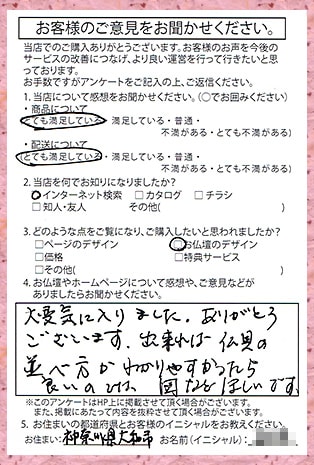 お客様のご意見をお聞かせください。
当店でのご購入ありがとうございます。お客様のお声を今後の
サービスの改善につなげ、より良い運営を行って行きたいと思
っております。
お手数ですがアンケートをご記入の上、ご返信ください。
1. 当店について感想をお聞かせください。(○でお囲みください)
・商品について
(とても満足している・満足している・普通・
不満がある・とても不満がある)
・配送について
(とても満足している・満足している・普通・
不満がある・とても不満がある)
2. 当店を何でお知りになりましたか?
□インターネット検索 □カタログ □チラシ
□知人・友人 その他( )
3. どのような点をご覧になり、ご購入したいと思われましたか?
□ページのデザイン □お仏壇のデザイン
□価格 □特典サービス
□その他( )
4. お仏壇やホームページについて感想や、ご意見などが
ありましたらお聞かせください。
大変気に入りました。ありがとう
ございます。出来れば仏具の
並べ方がわかりやすかったら
良いのでは、図などほしいです。
※このアンケートはHP上に掲載させて頂く場合がございます。
また、掲載にあたって内容を抜粋させて頂く場合がございます。
5. お住まいの都道府県とお客様のイニシャルをお教えください。
お住まい:神奈川県大和市 お名前(イニシャル):